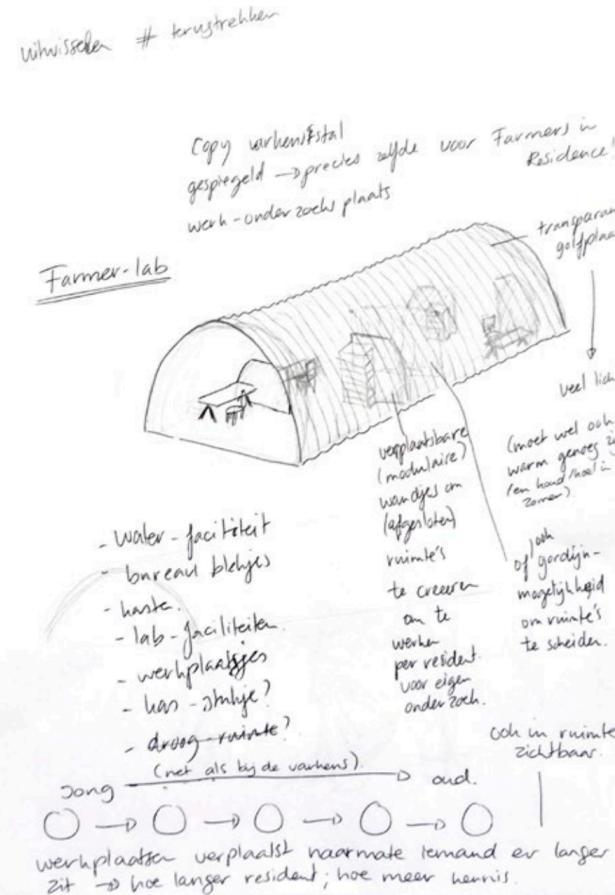 uitwisselen # terugtrekken
Copy varkensstal
gespiegeld → precies zelfde voor Farmers in
Residence!
werk-onderzoeks plaats
Farmer-lab
transparan
golfplaa
veel lich
(moet wel ook
warm genoeg zi
(en koud/koel in
zomer).
verplaatsbare
(modulaire)
wandjes om
(afgesloten)
ruimte's
te creeren
om te
werken
per resident.
voor eigen
onderzoek.
ook
of gordijn-
mogelijkheid
om ruimte's
te scheiden.
- water-faciliteit
- bureau blekjes
- kaste.
- lab-faciliteiten.
- werkplaatsjes
- kas-stukje?
- droog-ruimte?
(net als bij de varkens).
ook in ruimte
zichtbaar.
Jong → oud.
werkplaatsen verplaatst naarmate iemand er langer
zit → hoe langer resident; hoe meer kennis.